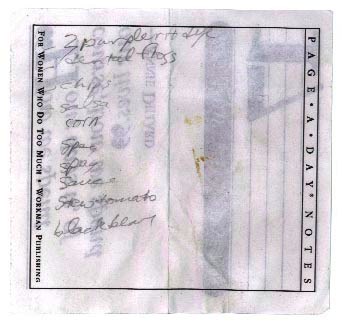 2 purple H dye
dental floss
chips
salsa
corn
spag
spag
sauce
stew tomato
PAGE • A • DAY® NOTES
FOR WOMEN WHO DO TOO MUCH • WORKMAN PUBLISHING